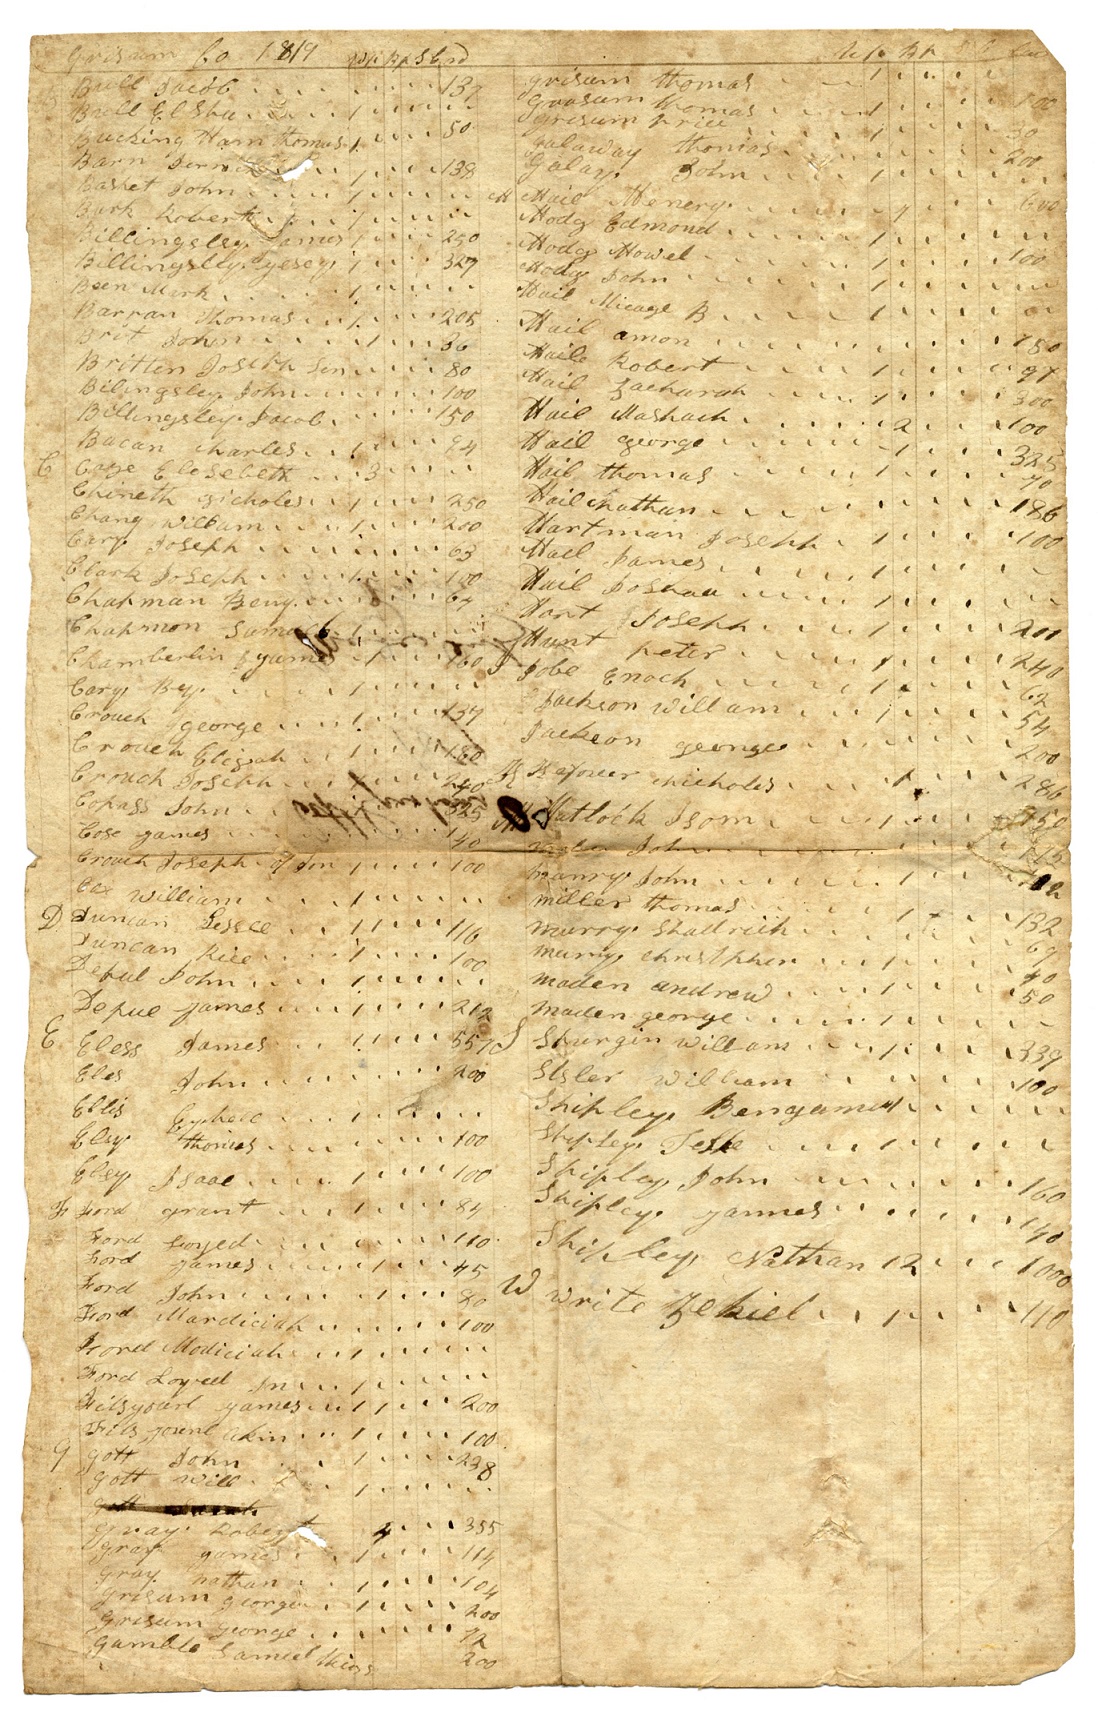 Grisum Co. 1819
Bull Jacob 137
Bull Elsha
Bucking Ham thomas 1 50
Barn
Basket John 138
Burk Robert
Billingsley James 250
Billingsley yesey 327
Been Mark
Barran Thomas 205
Brit John 36
Britten Joseph Sen 80
Bilingsley John 100
Billingsley Jacob 150
Bacan charles 94
C Case Elesebeth 3
Chineth nicholes 250
Chany william 200
Cary Joseph 63
Clark Joseph 100
Chapman Beny 64
Chapmon Samuel
Chamberlin yames 160
Cary
Crouch george 137
Crouch Elijah 180
Crouch Joseph 240
Copass John 325
Cose yames 140
Crouch Joseph of Jon 100
Cox william
D Duncan 116
Duncan Rice 100
Depul John
Depue yames 212
E Eless James 557
Eles John 200
Ellis
Elsy thomas 100
Elsy Isaac 100
F Ford grant 84
Ford Loyed 110
Ford yames 45
Ford John 80
Ford Mardiciah 100
Ford Modiciah
Ford Loyed Jn
Filsyourl yames 200
Fils yourl Akin 100
G gott John 238
gott will 2
gray Robert 4 355
gray yames 114
gray nathan 104
grisum george 200
Grisum george 72
gamble Samuel 200
grisum thomas
Grasum thomas 100
grisum price 30
galaway thomas 200
galay John
H Hail Henery 600
Hodg Edmond
Hodg Howel 100
Hodg John
Hail Micage B
Hail amon 150
Hail Robert 97
Hail Zachariah 300
Hail Mashach 2 100
Hail george 325
Hail thomas 70
Hail nathan 186
Hartman Joseph 100
Hael James
Hail Joshau
Hart Joseph 200
Hunt peter 240
J Jobe Enoch 62
Jackson william 54
Jackson george 200
K nicholas 286
M Matlock Isom 150
John
manry John
miller thomas 132
murry Shadrich 69
murry christpher 40
maden andrew 50
maden george
S Spurgin william 339
Sisler william 100
Shipley Bengamin
Shipley Jesse
Shipley John 160
Shipley yammes 140
Shipley Nathan 12 1000
W write Zekiel 110